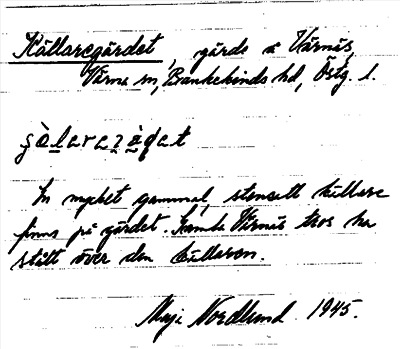 Källaregärdet, gärde å Värnäs,
Värna sn, Bankekinds hd, Östg. l.
En mycket gammal, stensatt källare
finns på gärdet. Gamla Värnäs tros ha
stått över den källaren.
Maj Nordlund 1945.